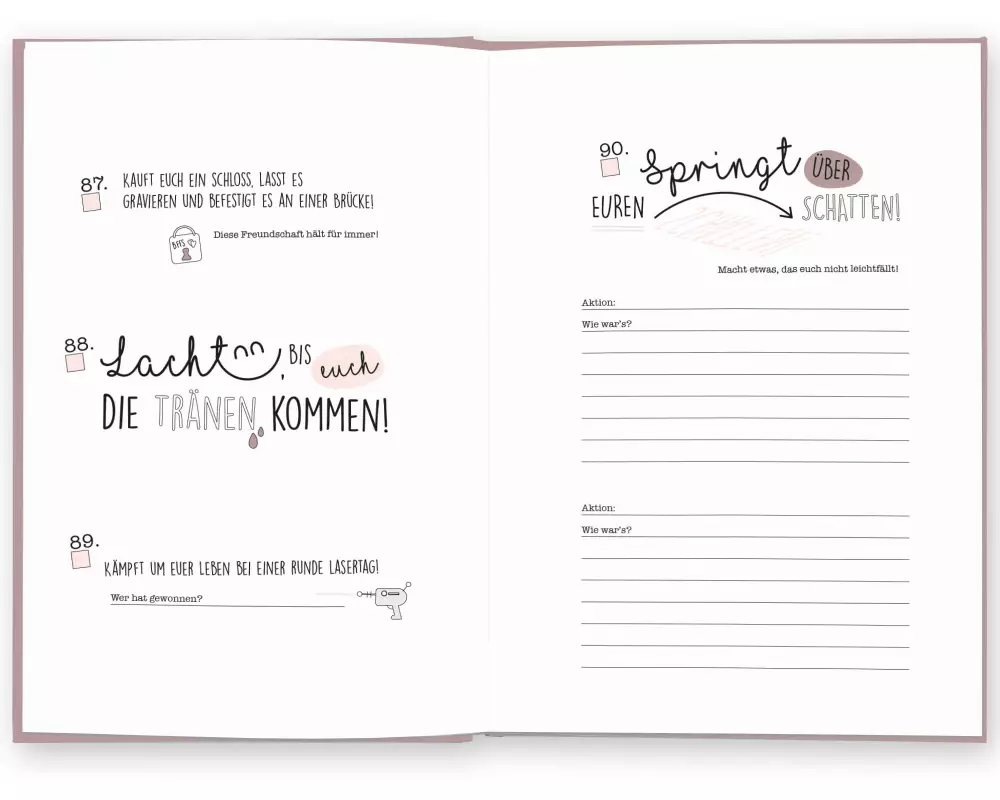 87. KAUFT EUCH EIN SCHLOSS, LASST ES
GRAVIEREN UND BEFESTIGT ES AN EINER BRÜCKE!
BFFS
Diese Freundschaft hält für immer!
88. Lacht, BIS euch
DIE TRÄNEN KOMMEN!
89.
KÄMPFT UM EUER LEBEN BEI EINER RUNDE LASERTAG!
Wer hat gewonnen?
90. Springt ÜBER
EUREN SCHATTEN!
Macht etwas, das euch nicht leichtfällt!
Aktion:
Wie war's?
Aktion:
Wie war's?